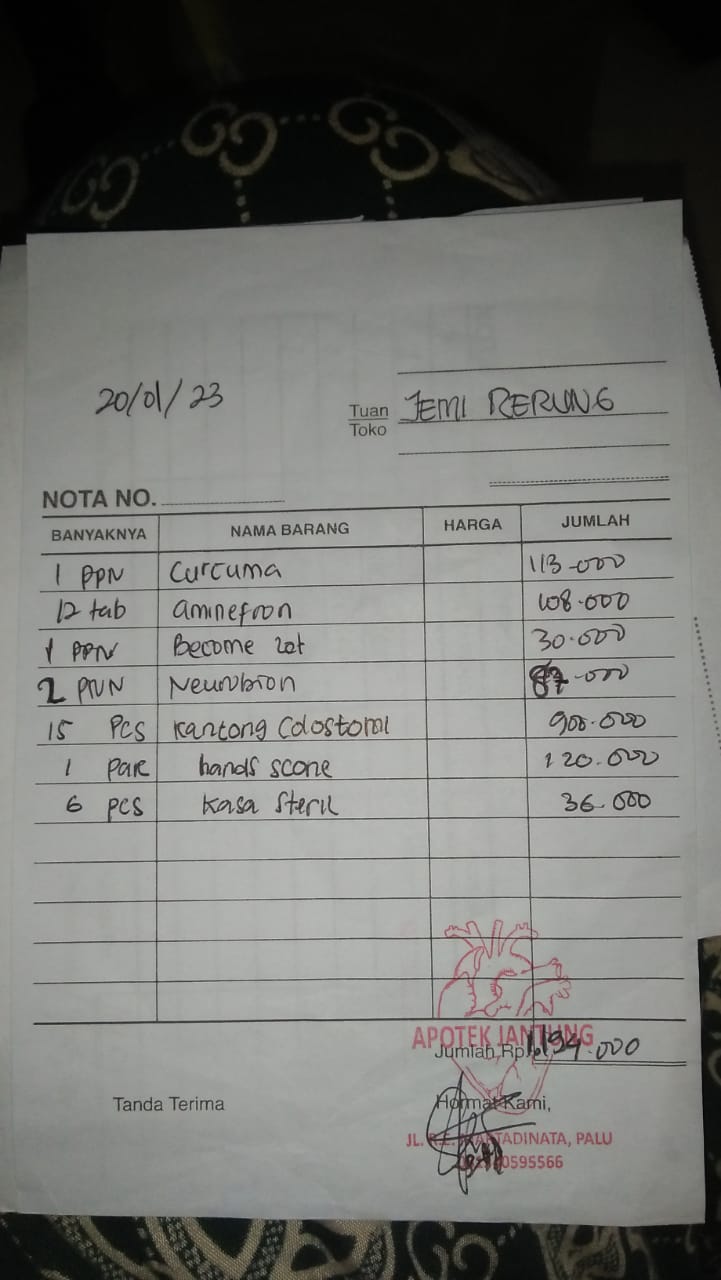 20/01/23
Tuan JEMI RERUNG
Toko
NOTA NO.
BANYAKNYA NAMA BARANG HARGA JUMLAH
1 PPN Curcuma 113.000
12 tab aminefron 108.000
1 PPN Become zet 30.000
2 Neurobion 87.000
15 Pcs Kantong Colostomi 900.000
1 pak hands scone 120.000
6 pcs Kasa Steril 36.000
APOTEK JANTUNG
Jumlah Rp 1.194.000
Tanda Terima Hormat Kami,
JL. TADINATA, PALU
0595566